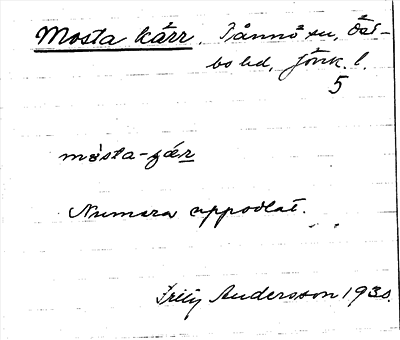 Mosta kärr. Tånnö sn, Öst-
bo hd, Jönk. l.
5
mosta-ɟær
Numera uppodlat.
Fritz Andersson 1930.